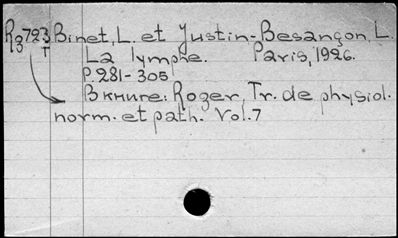 R3723 Binet, L. et Justin-Besançon, L.
T La lymphe. Paris, 1926.
P. 281-305
В книге: Roger, Tr. de physiol.
norm. et path. Vol. 7